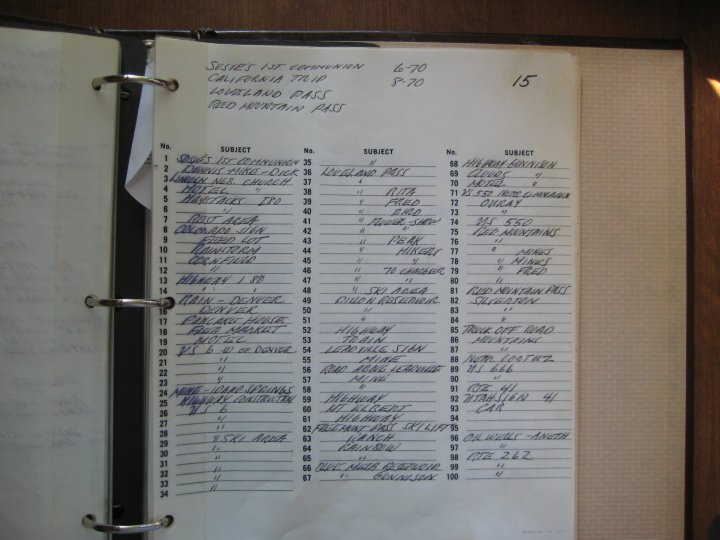 SUSIE'S 1ST COMMUNION 6-70
CALIFORNIA TRIP 8-70
LOVELAND PASS
RED MOUNTAIN PASS
15
No. SUBJECT
1 SUSIE'S 1ST COMMUNION
2 DENNIS-MIKE-DICK
3 LINCOLN NEB. CHURCH
4 HOTEL "
5 HAYSTACKS I80
6 "
7 REST AREA
8 COLORADO SIGN
9 FEED LOT
10 RAINSTORM
11 CORNFIELD
12 "
13 HIGHWAY I 80
14 " "
15 RAIN - DENVER
16 DENVER
17 PANCAKE HOUSE
18 MARKET
19 MOTEL
20 US 6 -W OF DENVER
21 "
22 "
23 "
24 MINE - IDAHO SPRINGS
25 HIGHWAY CONSTRUCTION
26 US 6
27 "
28 "
29 " SKI AREA
30 "
31 "
32 "
33 "
34 "
No. SUBJECT
35 "
36 LOVELAND PASS
37 "
38 " RITA
39 " FRED
40 " BIRD
41 " FLOWER SHOW
42 "
43 " PEAK
44 " HIKERS
45 " "
46 " TO CAMPER
47 "
48 " SKI AREA
49 DILLON RESERVOIR
50 "
51 "
52 HIGHWAY
53 TRAIN
54 LEADVILLE SIGN
55 MINE
56 ROAD ABOVE LEADVILLE
57 MINE
58 "
59 HIGHWAY
60 MT ELBERT
61 HIGHWAY
62 FREEMONT PASS SKI LIFT
63 RANCH
64 RAINBOW
65 "
66 BLUE MESA RESERVOIR
67 " GUNNISON
No. SUBJECT
68 HIGHWAY GUNNISON
69 CLOUDS "
70 MOTEL "
71 US 550 NEAR
72 OURAY
73 "
74 US 550
75 RED MOUNTAINS
76 "
77 " MINES
78 " MINES
79 " FRED
80 "
81 RED MOUNTAIN PASS
82 SILVERTON
83 "
84 "
85 TRUCK OFF ROAD
86 MOUNTAINS
87 "
88 NEAR CORTEZ
89 US 666
90 "
91 RTE 41
92 UTAH SIGN 41
93 CAR
94
95
96 OIL WELLS - ANETH
97 "
98 RTE 262
99 "
100 "